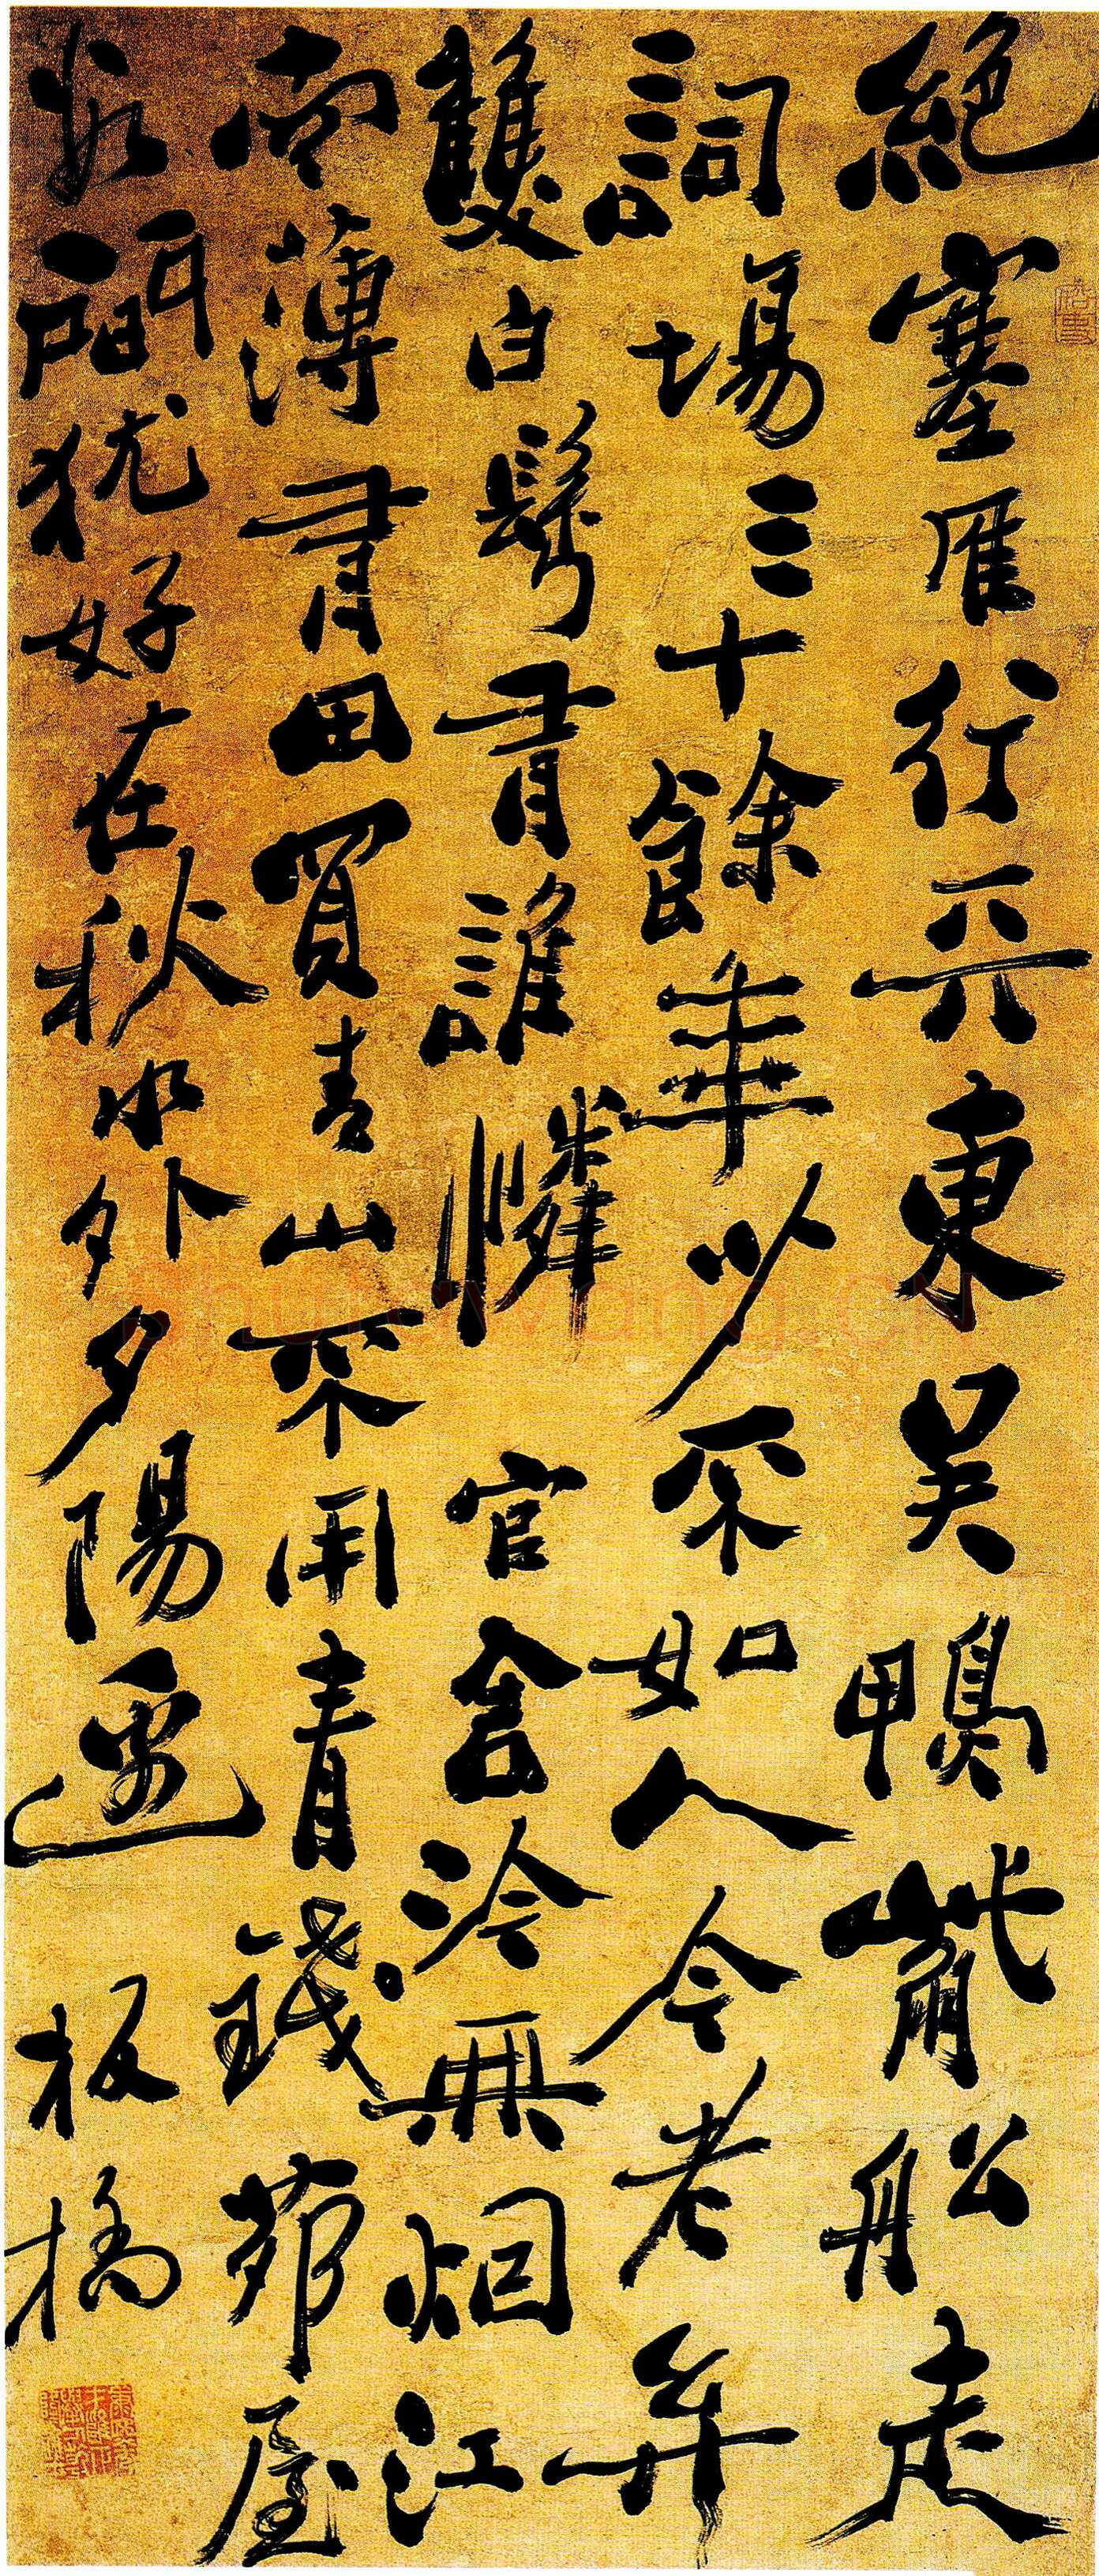 絕塞雁行天東吳鴨觜舩走
詞場三十餘年少不如人今老矣
雙白鬢有誰憐 官舍冷無烟江
南薄有田買青山不用青錢茆屋
數間猶好在秋水外夕陽邊 板橋
shufawang.CN